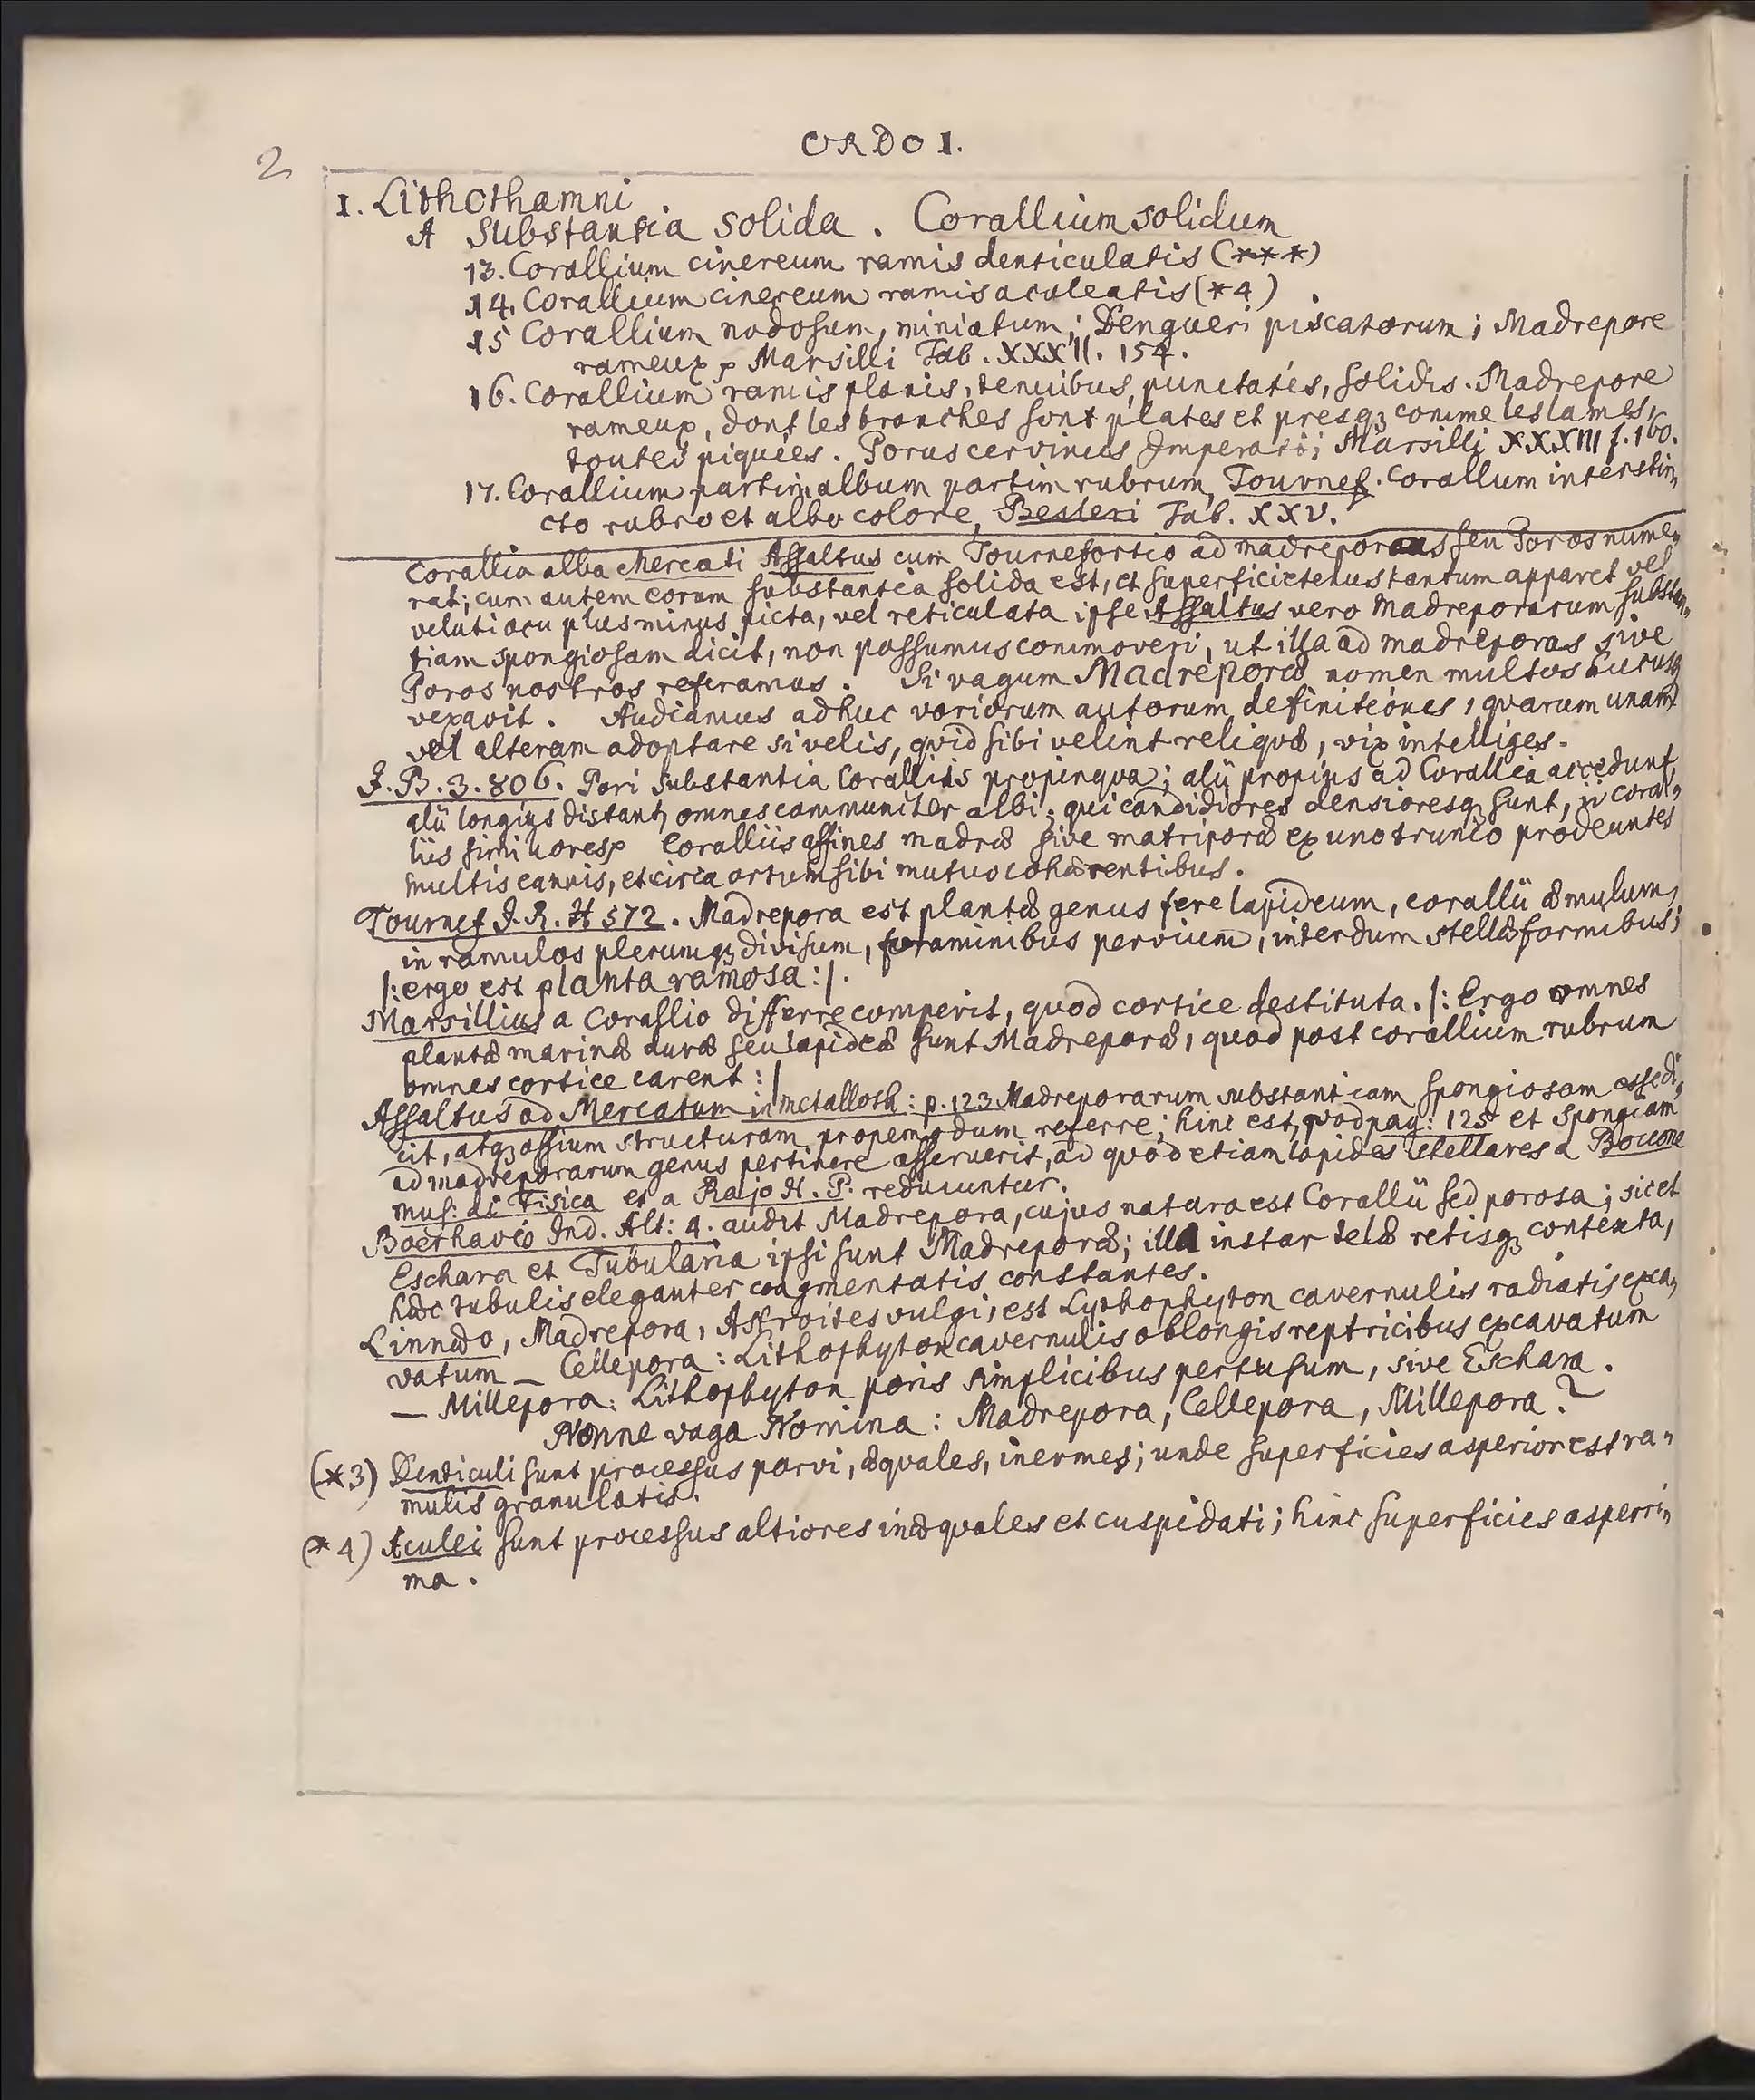 2
ORDO I.
I. Lithothamni
A Substantia solida. Corallium solidum
13. Corallium cinereum ramis denticulatis (***)
14. Corallium cinereum ramis aculeatis (*4)
15 Corallium nodosum, miniatum; Dengueri piscatorum; Madrepore
rameux Marsilli Tab. XXXII. 154.
16. Corallium ramis planis, tenuibus, punctatis, solidis. Madrepore
rameux, dont les branches sont plates et presq; comme les lames,
toutes piquées. Porus cervinus Imperati; Marsilli XXXIII f. 160.
17. Corallium partim album partim rubrum, Tournef. Corallum interstin,
cto rubro et albo colore, Besleri Tab. XXV.
Corallia alba Mercati Assaltus cum Tournefortio ad madreporas seu Poros nume,
rat; cum autem eorum substantia solida est, et superficietenus tantum apparet vel
veluti acu plus minus picta, vel reticulata ipse Assaltus vero Madreporarum substan,
tiam spongiosam dicit, non possumus commoveri, ut illa ad madreporas sive
Poros nostros referamus. Si vagum Madreporæ nomen multos hucusq;
vexavit. Audiamus adhuc variorum autorum definitiones, quarum unam
vel alteram adoptare si velis, quid sibi velint reliquæ, vix intelliges.
J. B. 3. 806. Pori substantia Coralliis propinqua; alii propius ad Corallia accedunt,
alii longius distant, omnes communiter albi; qui candidiores densioresq; sunt, ii coral,
liis similiores Coralliis affines madræ sive matriporæ ex uno trunco prodeuntes
multis cannis, et circa ortum sibi mutuo cohærentibus.
Tournef I. R. H 572. Madrepora est plantæ genus fere lapideum, corallii æmulum,
in ramulos plerumq; divisum, foraminibus pervium, interdum stellæformibus;
/: ergo est planta ramosa :/.
Marsillius a Corallio differre comperit, quod cortice destituta. /: Ergo omnes
plantæ marinæ duræ seu lapideæ sunt Madreporæ, quod post corallium rubrum
omnes cortice carent :/
Assaltus ad Mercatum in metalloth: p. 123 Madreporarum substantiam spongiosam esse di,
cit, atq; ossium structuram propemodum referre; hinc est, quod pag: 125 et Spongiam
ad madreporarum genus pertinere asseruerit, ad quod etiam lapides stellares a Boccone
mus: di Fisica et a Rajo H. P. reducuntur.
Boerhavéo Ind. Alt: 4. audit Madrepora, cujus natura est Corallii sed porosa; sic et
Eschara et Tubularia ipsi sunt Madreporæ; illa instar telæ retisq; contexta,
hæc tubulis eleganter coagmentatis constantes.
Linnæo, Madrepora, Astroites vulgi, est Lythophyton cavernulis radiatis exca,
vatum — Cellepora: Lithophyton cavernulis oblongis reptricibus excavatum
— Millepora: Lithophyton poris simplicibus pertusum, sive Eschara.
Nonne vaga Nomina: Madrepora, Cellepora, Millepora?
(*3) Denticuli sunt processus parvi, æquales, inermes; unde superficies asperior est ra,
mulis granulatis.
(*4) Aculei sunt processus altiores inæquales et cuspidati; hinc superficies asperri,
ma.